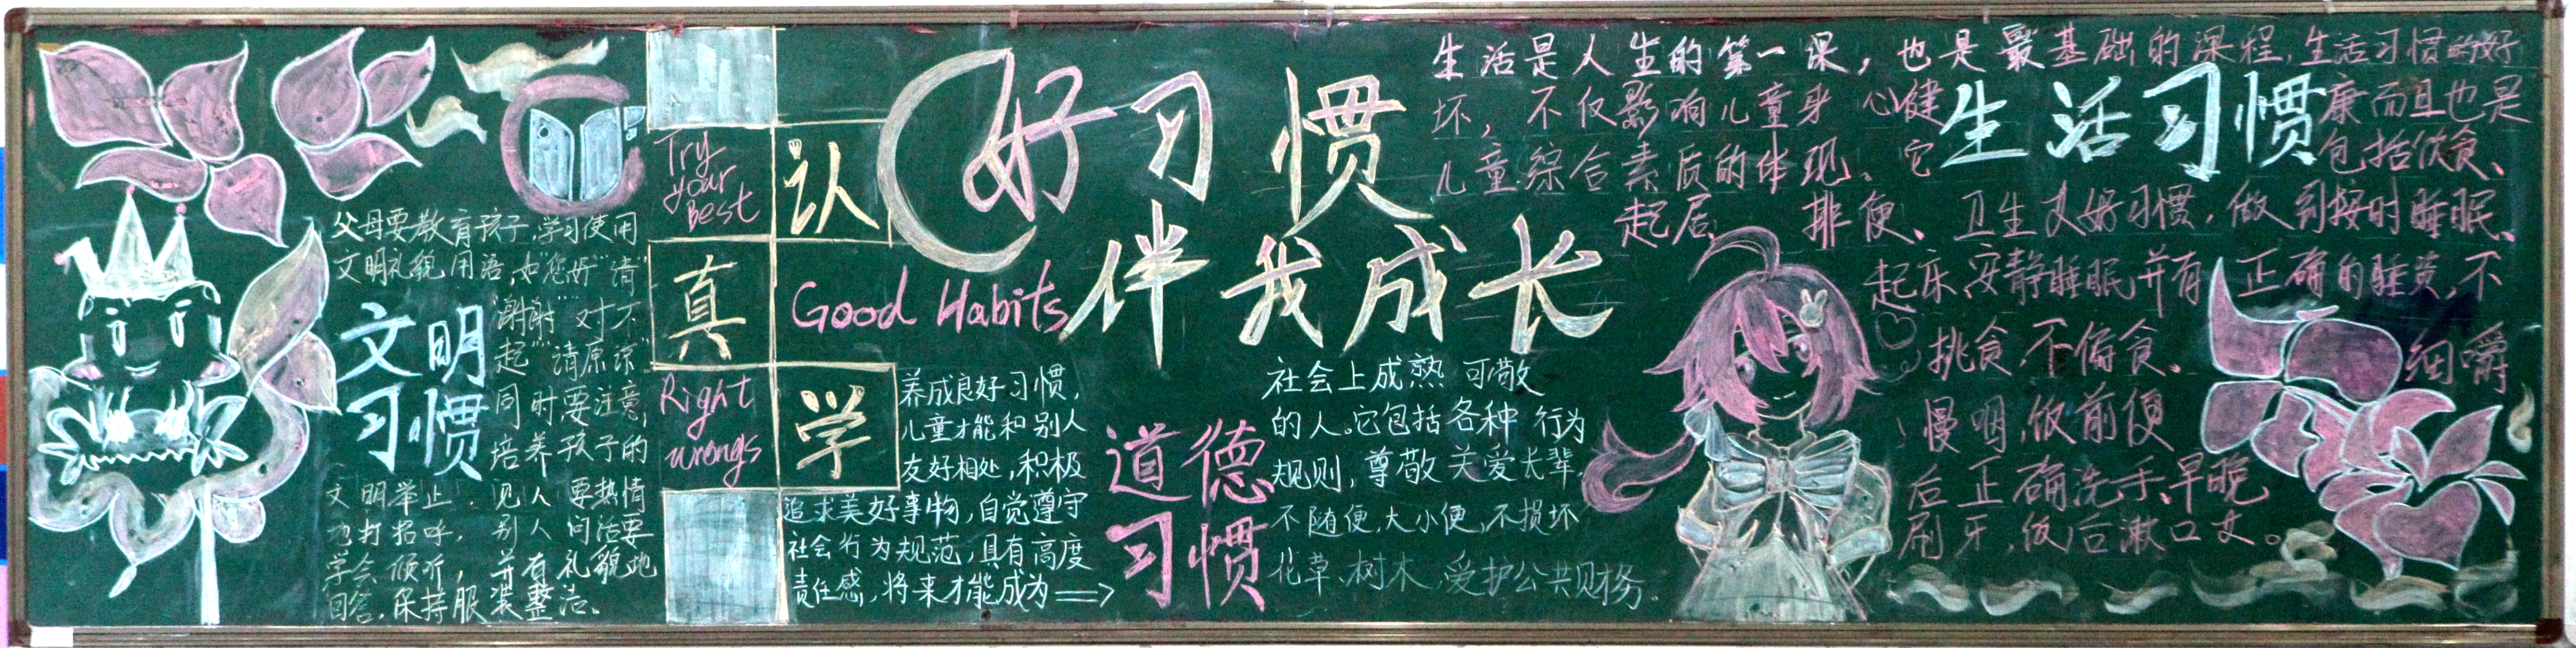 好习惯
伴我成长
Good Habits
父母要教育孩子,学习使用
文明礼貌用语,如"您好""请"
"谢谢""对不
起""请原谅"
同时要注意,
培养孩子的
文明举止.见人要热情
地打招呼,别人问话要
学会倾听,并有礼貌地
回答,保持服装整洁、
文明
习惯
Try
your
Best
认
真
学
Right
wrongs
养成良好习惯,
儿童才能和别人
友好相处,积极
追求美好事物,自觉遵守
社会行为规范,具有高度
责任感,将来才能成为
道德
习惯
社会上成熟可敬
的人。它包括各种行为
规则,尊敬关爱长辈,
不随便,大小便,不损坏
花草、树木,爱护公共财务.
生活习惯
生活是人生的第一课,也是最基础的课程,生活习惯的好
坏,不仅影响儿童身心健康而且也是
儿童综合素质的体现、它包括饮食、
起居、排便、卫生好习惯,做到按时睡眠、
起床、安静睡眠并有正确的睡姿,不
挑食,不偏食、细嚼
慢咽,饭前便
后正确洗手、早晚
刷牙,饭后漱口